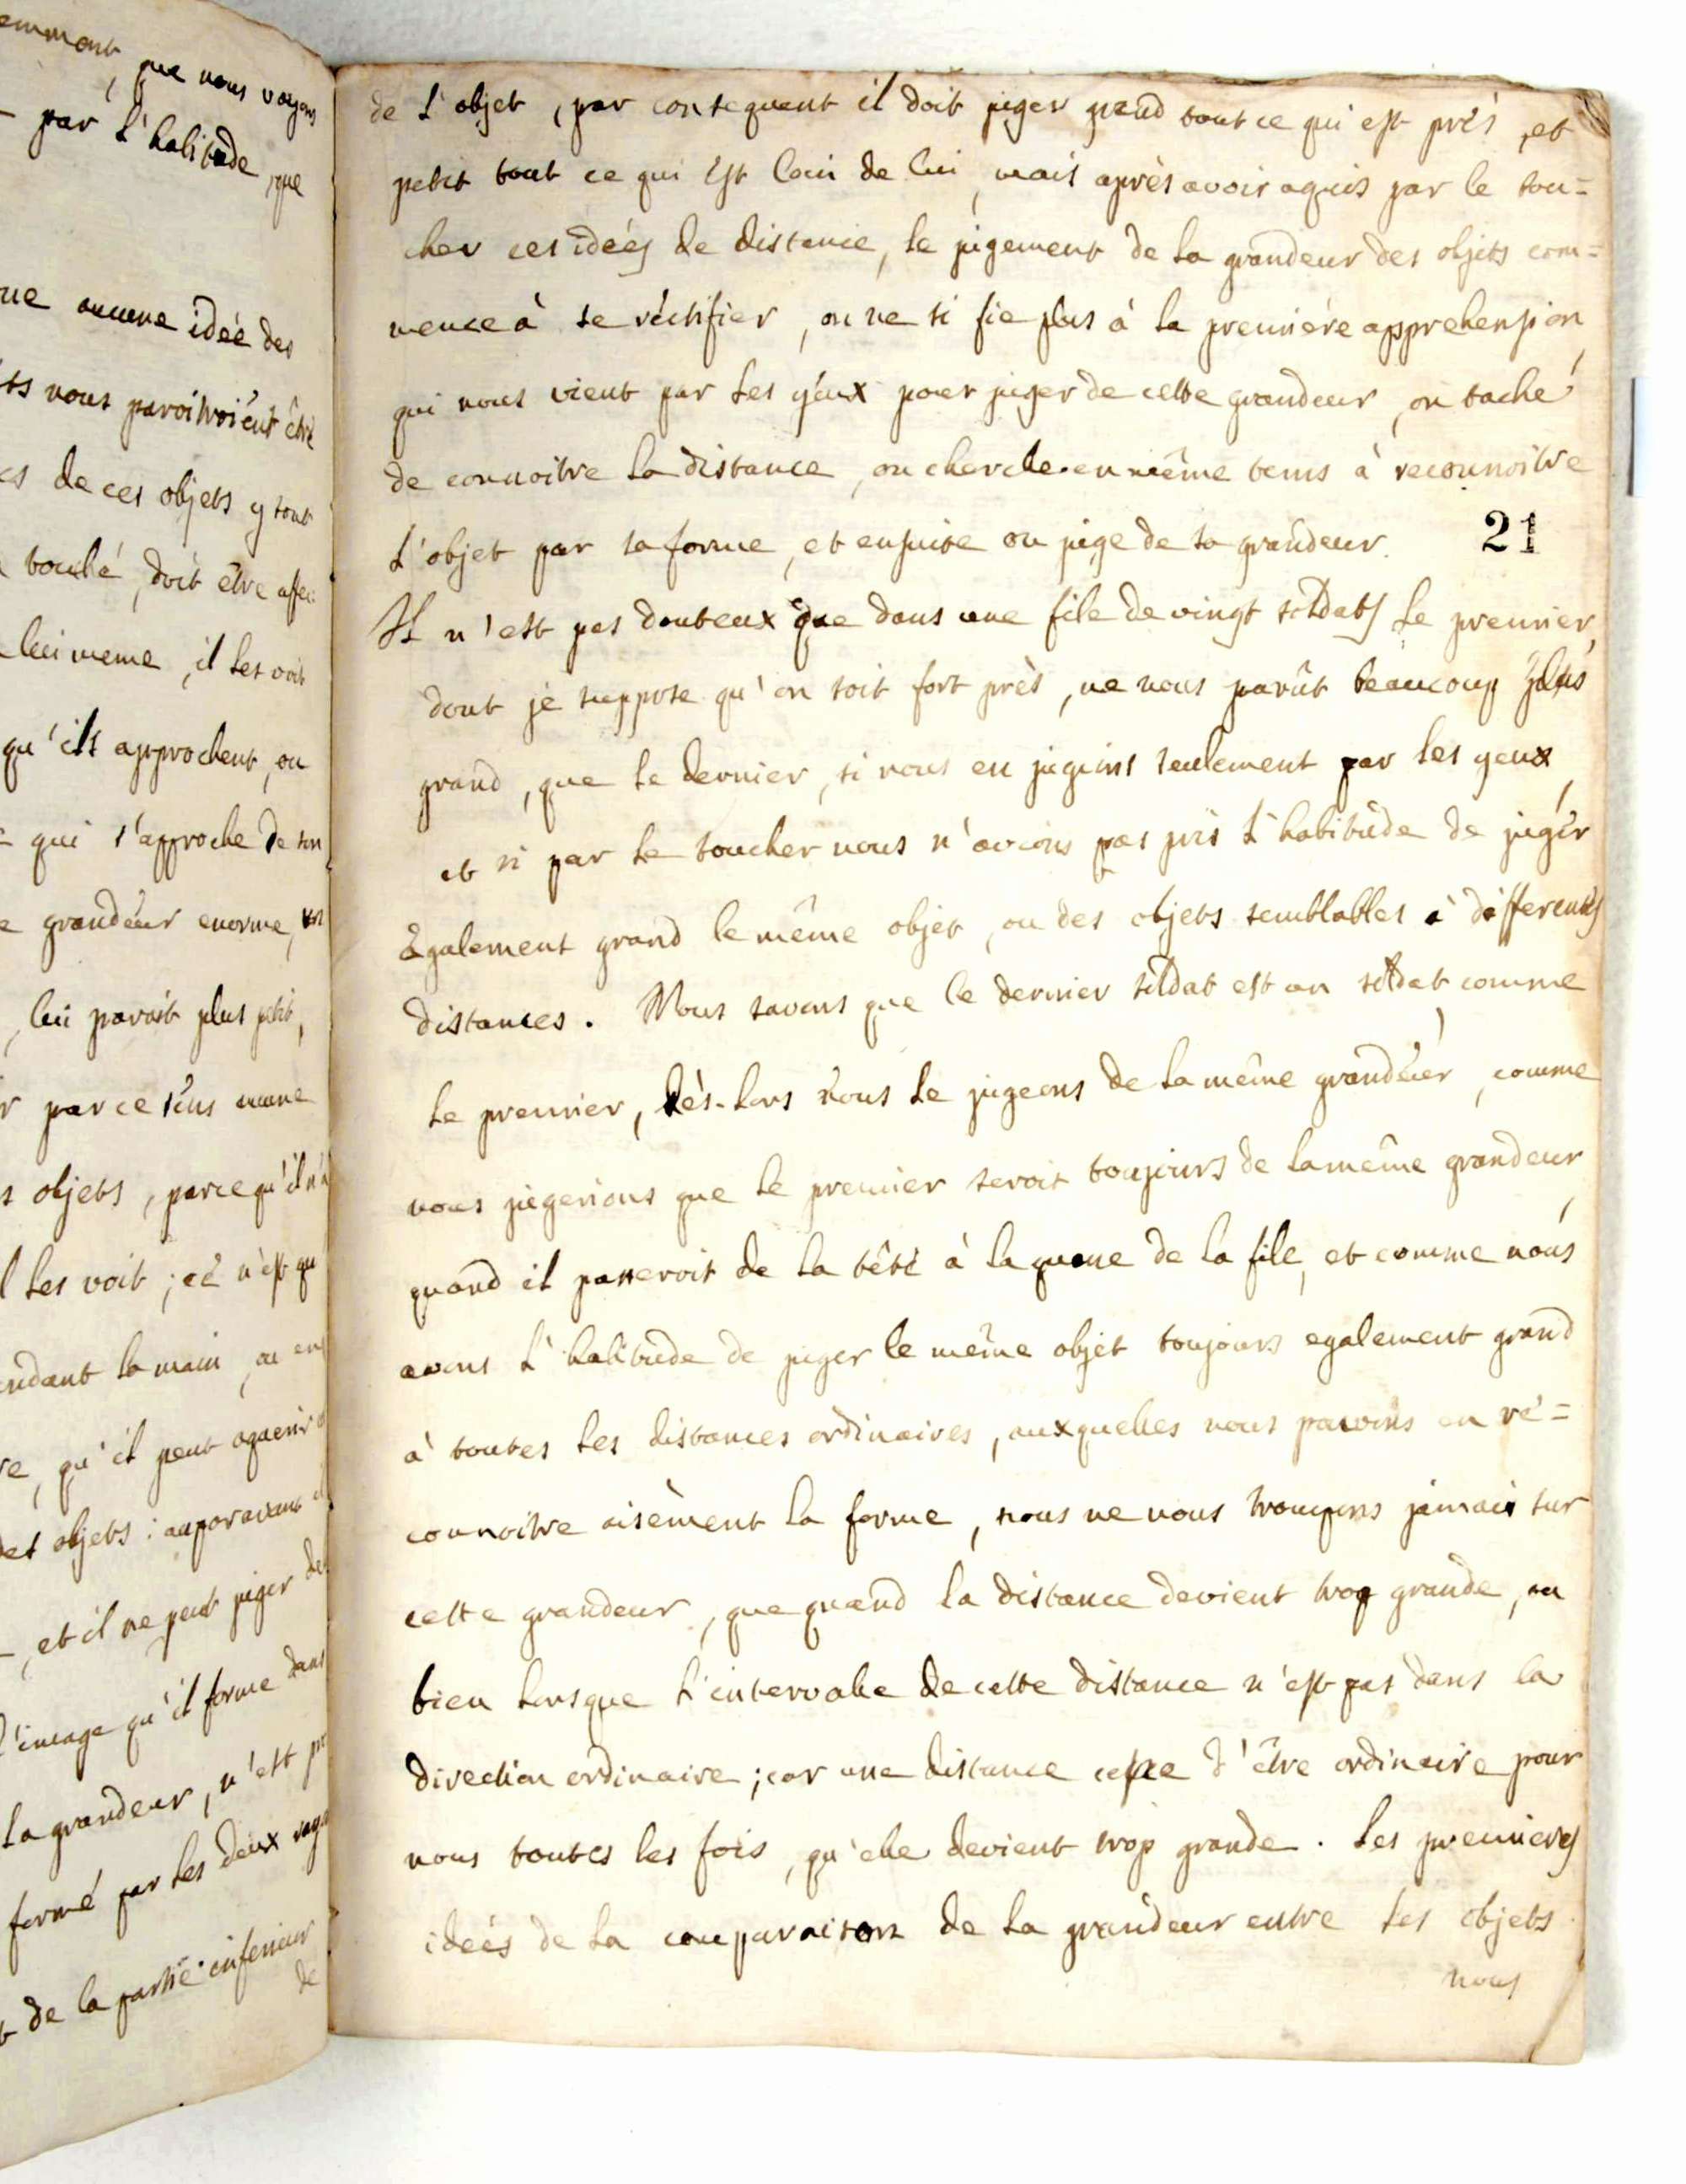 emment, que nous voyons
par l'habitude, que
ne aucune idée des
ts nous paroitroient être
es de ces objets y sont
touché, doit être afec
lui meme, il les voit
qu'ils approchent, ou
qui s'approche de son
e grandeur enorme, un
, lui paroit plus petit,
r par ce sens aucune
s objets, parce qu'il n'a
l les voit ; ce n'est qu
endant la main, ou en
re, qu'il peut aquerir
des objets : auparavant il
, et il ne peut juger de
l'image qu'il forme dans
la grandeur, n'est pr
formé par les deux rayo
t de la partie inferieur
de
de l'objet, par consequent il doit juger grand tout ce qui est près, et
petit tout ce qui est loin de lui, mais après avoir aquis par le tou=
cher ces ideés de distance, le jugement de la grandeur des objets com=
mence à se réctifier, on ne si fie plus à la premiére apprehension
qui nous vient par les yeux pour juger de cette grandeur, on tache
de connoitre la distance, on cherche en même tems à reconnoitre
l'objet par sa forme, et ensuite on juge de sa grandeur. 21
Il n'est pas douteux que dans une file de vingt soldats le premier,
dont je suppose qu'on soit fort près, ne nous parût beaucoup plus
grand, que le dernier, si nous en jugions seulement par les yeux,
et si par le toucher nous n'avions pas pris l'habitude de juger
également grand le même objet, ou des objets semblables à differents
distances. Nous savons que le dernier soldat est un soldat comme
le premier, dès-lors nous le jugeons de la même grandeur, comme
nous jugerions que le premier seroit toujours de la même grandeur,
quand il passeroit de la tête à la queue de la file, et comme nous
avons l'habitude de juger le même objet toujours egalement grand
à toutes les distances ordinaires, auxquelles nous pouvons en ré=
connoitre aisèment la forme, nous ne nous trompons jamais sur
cette grandeur, que quand la distance devient trop grande, ou
bien lorsque l'intervalle de cette distance n'est pas dans la
direction ordinaire ; car une distance cesse d'être ordinaire pour
nous toutes les fois, qu'elle devient trop grande. Les premieres
ideés de la comparaison de la grandeur entre les objets
nous